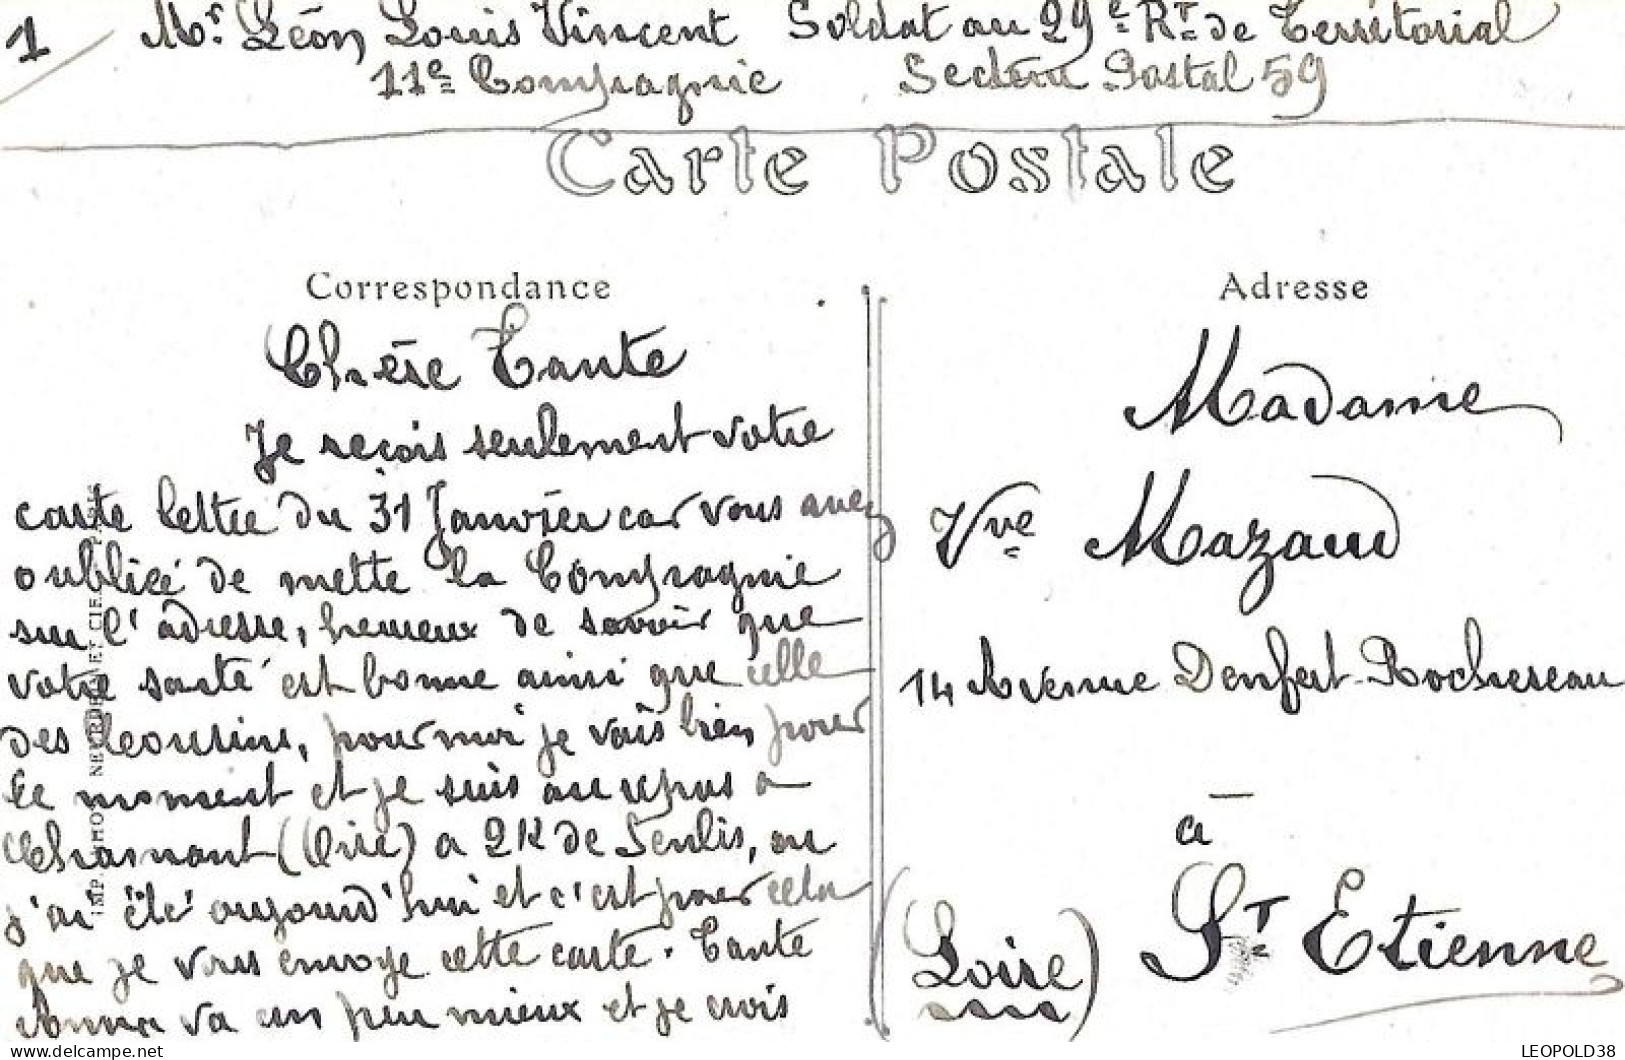 1
Mr. Léon Louis Vincent Soldat au 29e Rt de Territorial
11e Compagnie Secteur Postal 59
Carte Postale
Correspondance
Chère Tante
Je reçois seulement votre
carte lettre du 31 Janvier car vous avez
oublié de mette la Compagnie
sur l'adresse, heureux de savoir que
votre santé est bonne ainsi que celle
des cousins, pour moi je vais bien pour
le moment et je suis au repos a
Chamant (Oise) a 2K de Senlis, ou
j'ai été aujourd'hui et c'est pour cela
que je vous envoye cette carte. Tante
Anna va un peu mieux et je crois
Adresse
Madame
Vve Mazaud
14 Avenue Denfert-Rochereau
à
St Etienne
(Loire)
IMP. PHOT. NEURDEIN ET CIE.
LEOPOLD38